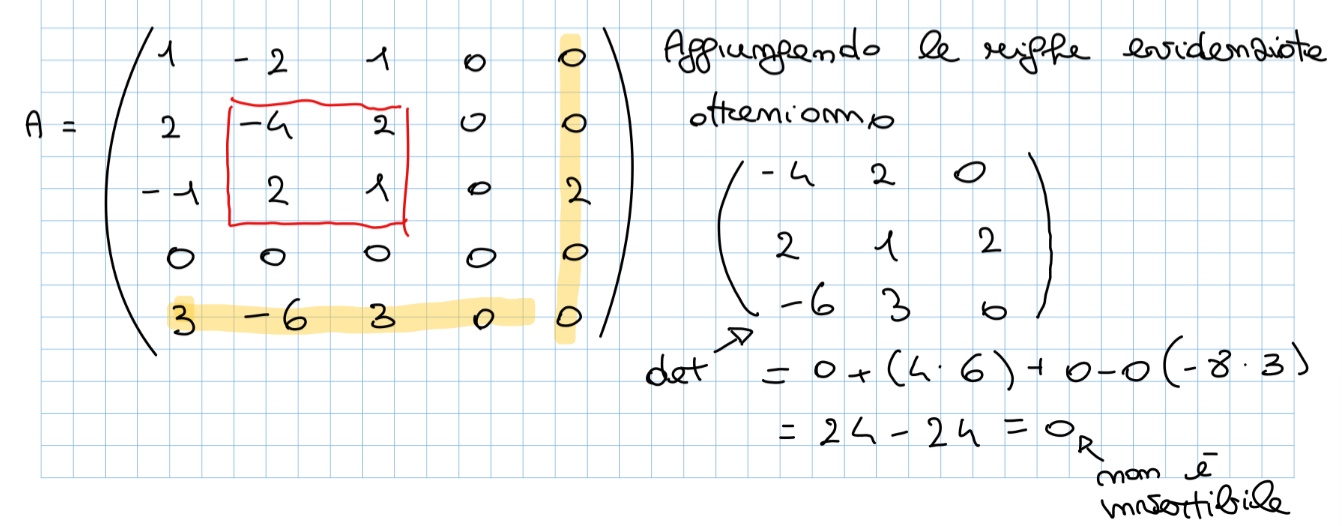 A = ( 1 -2 1 0 0
2 -4 2 0 0
-1 2 1 0 2
0 0 0 0 0
3 -6 3 0 0 )
Aggiungendo le righe evidenziate
otteniamo
( -4 2 0
2 1 2
-6 3 0 )
det = 0 + (4 · 6) + 0 - 0 (-8 · 3)
= 24 - 24 = 0
non è
invertibile